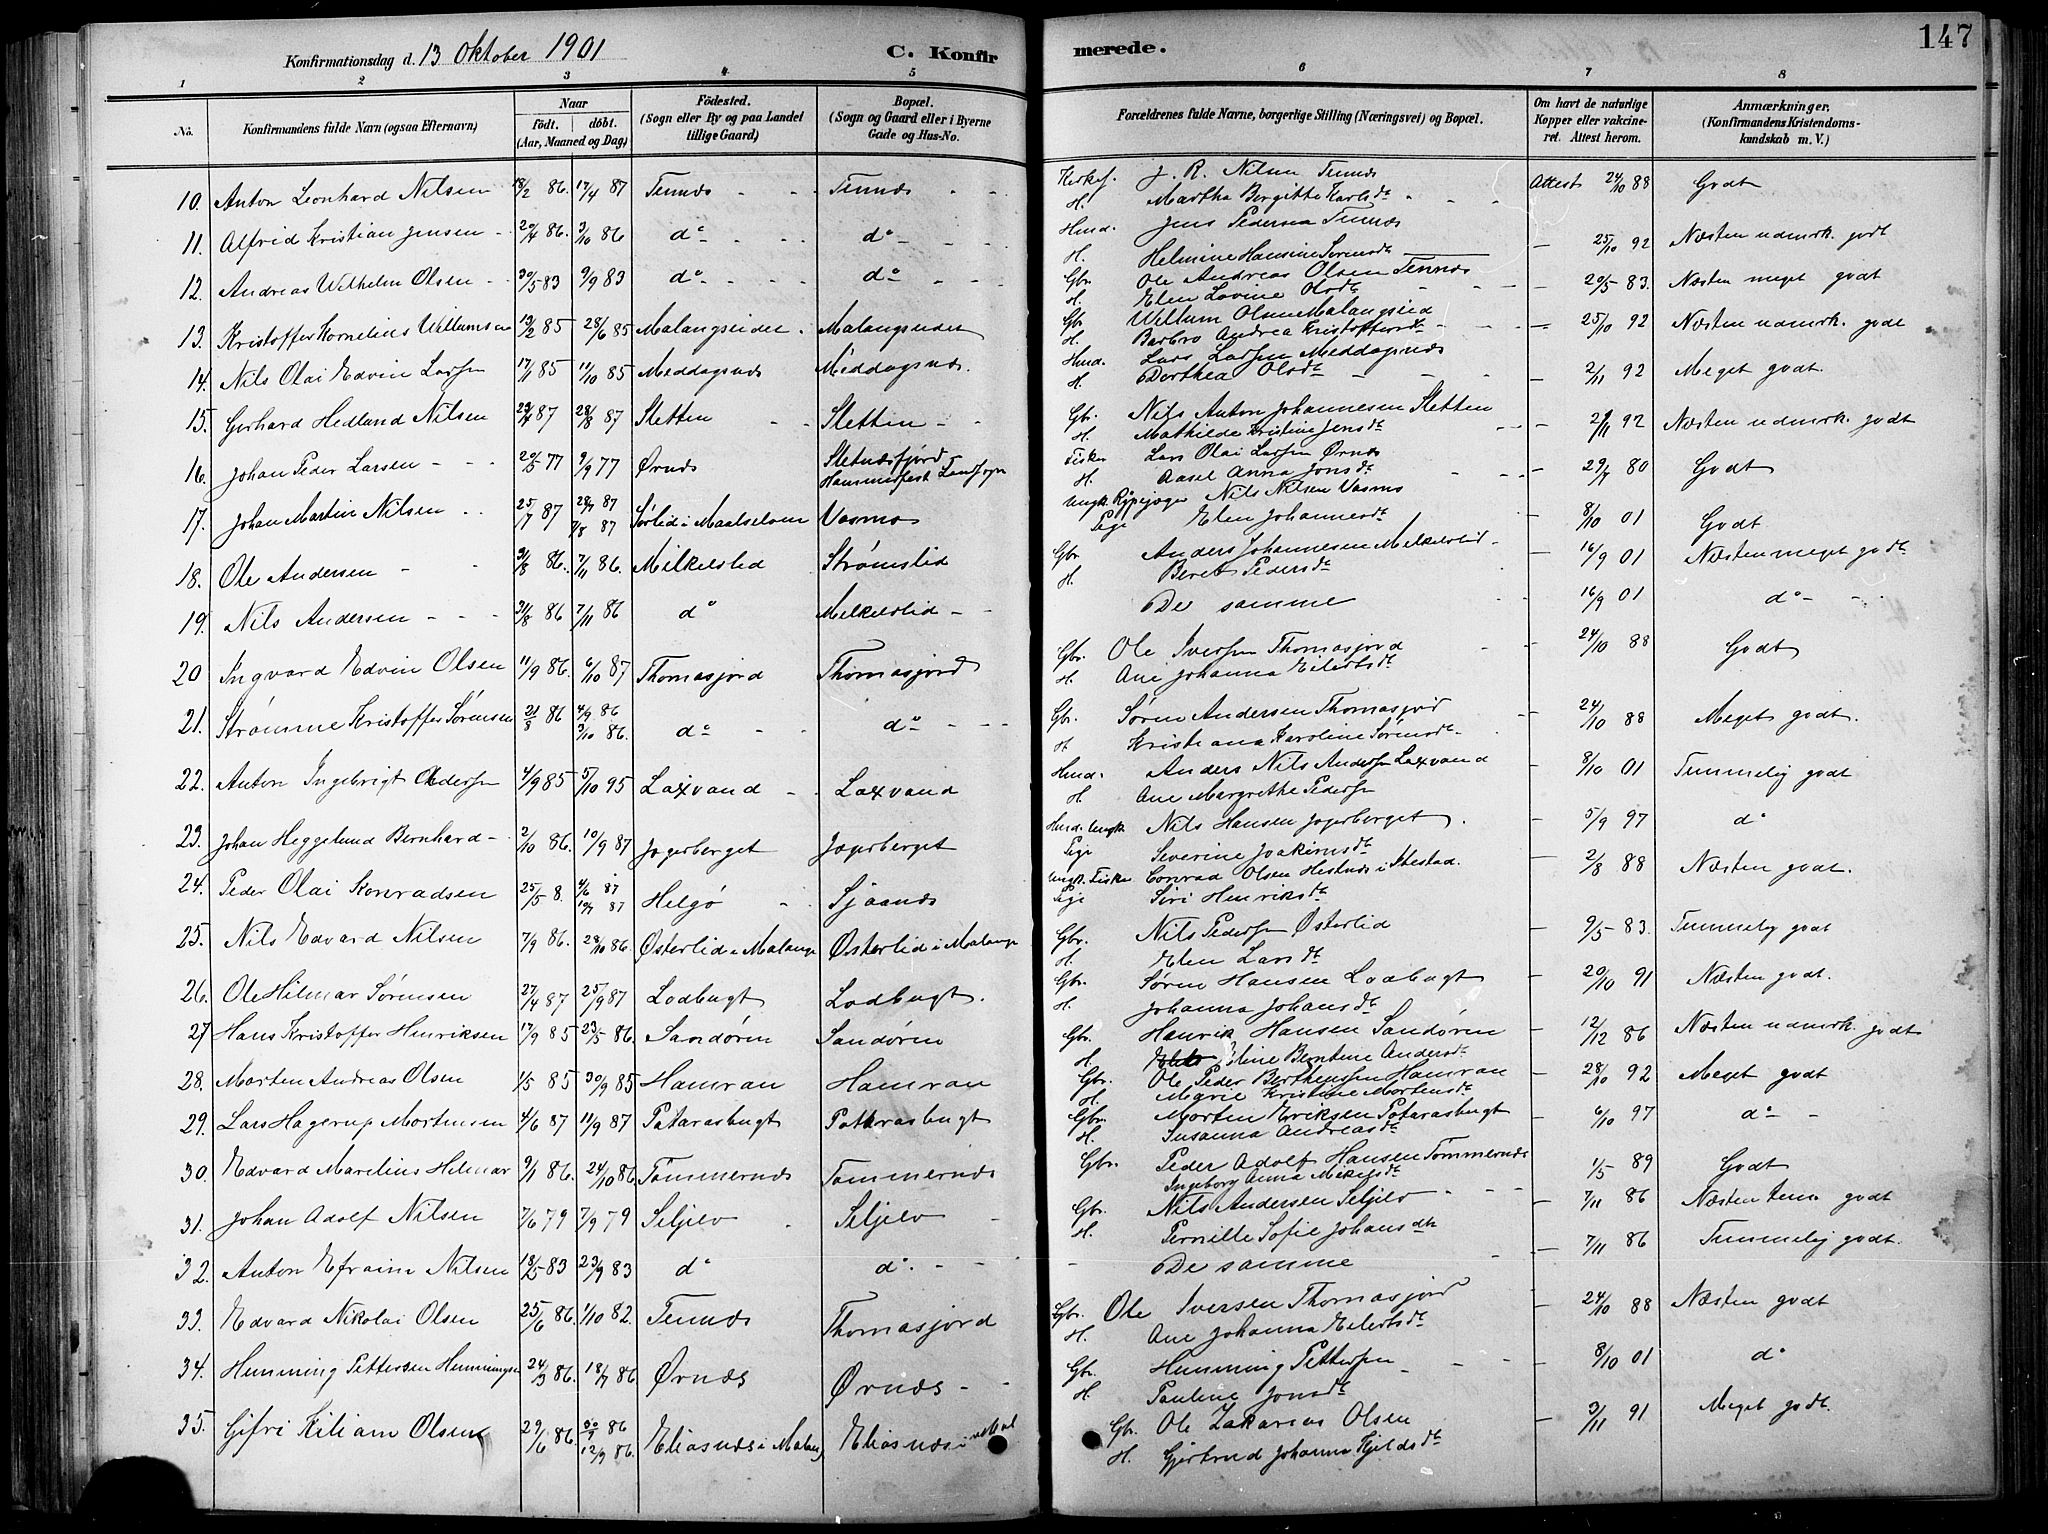 147
Konfirmationsdag d. 13 Oktober 1901 C. Konfirmerede.
1 2 3 4 5 6 7 8
No. Konfirmandens fulde Navn (ogsaa Efternavn) Naar Födt. döbt. (Aar, Maaned og Dag) Födested. (Sogn eller By og paa Landet tillige Gaard) Bopæl. (Sogn og Gaard eller i Byerne Gade og Hus-No. Forældrenes fulde Navne, borgerlige Stilling (Næringsvei) og Bopæl. Om havt de naturlige Kopper eller vakcineret. Attest herom. Anmærkninger. (Konfirmandens Kristendomskundskab m. V.)
10. Anton Leonhard Nilsen 18/2 86. 17/4 87 Tennæs Tennæs Kirkes. J. R. Nilsen Tennæs Attest 24/10 88 Godt
H. Martha Bergitte Karlsdt
11. Alfrid Kristian Jensen 20/4 86. 3/10 86 do do Hmd. Jens Pedersen Tennæs
H. Helmine Hansine Sørensdt — 25/10 92 Næsten udmrk. godt
12. Andreas Wilhelm Olsen 30/5 83 9/9 83 do do Gbr. Ole Andreas Olsen Tennæs
H. Elen Lovine Olsdt — 20/5 83. Næsten meget godt
13. Kristoffer Kornelius Willumsen 13/2 85 28/6 85 Malangseidet Malangseidet Gbr. Willum Olsen Malangseid
H. Barbro Andrea Kristoffersdt — 25/10 92 Næsten udmrk. godt
14. Nils Olai Edvin Larsen 17/1 85 11/10 85 Meddagsnæs Meddagsnæs. Hmd. Lars Larsen Meddagsnæs
H. Dorthea Olsdt — 2/11 92 Meget godt.
15. Gerhard Hedlund Nilsen 29/4 87 28/8 87 Sletten Sletten Gbr. Nils Anton Johannesen Sletten
H. Mathilde Kristine Jensdt — 2/11 92 Næsten udmrk. godt
16. Johan Peder Larsen 20/5 77 9/9 77 Ørnæs Sletnæsfjord Hammerfest Landsogn Fisker Lars Olai Larsen Ørnæs
H. Aasel Anna Jonsdt — 29/7 80 Godt
17. Johan Martin Nilsen 25/7 87 28/7 87 7/8 87 Sørlid i Maalselven Vasmo Ungk. Rypejæger Nils Nilsen Vasmo
Pige Elen Johannesdt — 8/10 01 Godt
18. Ole Andersen 31/8 86. 7/11 86. Milkelslid Strømslid Gbr. Anders Johannesen Melkelslid
H. Beret Pedersdt — 16/9 01 Næsten meget godt
19. Nils Andersen 31/8 86 7/11 86 do Melkelslid De samme — 16/9 01 do
20 Ingvard Edvin Olsen 11/9 86. 6/10 87 Thomasjord Thomasjord Gbr. Ole Iversen Thomasjord — 24/10 88 Godt
H. Ane Johanna Eilertsdt
21. Strømme Kristoffer Sørensen 21/8 86 4/9 86 3/10 86. do do Gbr. Søren Andersen Thomasjord — 24/10 88 Meget godt.
H Kristiana Karoline Sørensdt
22. Anton Ingebrigt Andersen 4/9 85 5/10 95 Laxvand Laxvand Hmd. Anders Nils Andersen Laxvand — 8/10 01 Temmelig godt
H. Ane Margrethe Pedersen
23. Johan Heggelund Bernhard 2/10 86. 10/9 87 Jogerberget Jogerberget Hmd. Ungk. Nils Hansen Jogerberget. — 5/9 97 do
Pige Severine Joakimsdt
24. Peder Olai Konradsen 25/5 8. 4/6 87 10/7 87 Helgø Sjaanæs Ungk. Fisker Conrad Olsen Hestnæs i Ibestad. — 2/8 88 Næsten godt.
Pige Siri Henriksdt
25. Nils Edvard Nilsen 7/9 86. 28/10 86. Østerlid i Malangen Østerlid i Malangen Gbr. Nils Pedersen Østerlid — 9/5 83. Temmelig godt
H. Elen Larsdt
26. Ole Hilmar Sørensen 27/4 87 25/9 87 Lodbugt Lodbugt. Gbr. Søren Hansen Lodbugt — 20/10 91 Næsten godt.
H. Johanna Johansdt
27 Hans Kristoffer Henriksen 17/9 85 23/5 86. Sandøren Sandøren Gbr. Henrik Hansen Sandøren — 12/12 86 Næsten udmrk. godt
H. Eline Bentine Andersdt
28. Morten Andreas Olsen 1/5 85 30/9 85 Hamran Hamran Gbr. Ole Peder Berthinssen Hamran — 28/10 92 Meget godt
H. Marie Kristine Mortensdt
29. Lars Hagerup Mortensen 4/6 87 11/9 87 Patarasbugt Pattarasbugt Gbr. Morten Eriksen Patarasbugt — 6/10 97 do
H. Susanna Andreasdt
30. Edvard Marelius Hilmar 9/1 86. 24/10 86. Tømmernæs Tømmernæs Gbr. Peder Adolf Hansen Tømmernæs 1/5 89 Godt
Ingeborg Anna Mikelsdt
31. Johan Adolf Nilsen 7/6 79 7/9 79 Seljelv Seljelv Gbr. Nils Andersen Seljelv — 7/11 86 Næsten tem. godt
H. Pernille Sofie Johansdtr
32. Anton Efraim Nilsen 18/5 83 23/9 83 do do. De samme — 7/11 86 Temmelig godt.
33. Edvard Nikolai Olsen 25/6 86. 1/10 82. Tennæs Thomasjord Gbr. Ole Iversen Thomasjord — 24/10 88 Næsten godt
H. Ane Johanna Eilertsdt
34. Hemming Pettersen Hemmingsen 24/3 86. 18/7 86 Ørnæs Ørnæs Gbr. Hemming Pettersen — 8/10 01 do
H. Pauline Jonsdt
35. Gifri Kiliam Olsen 29/6 86. 30/7 86 12/9 86. Eliasnæs i Malang Eliasnæs i Gbr. Ole Zakarias Olsen — 3/11 91 Meget godt.
H. Gjertrud Johanna Kjeldsdt